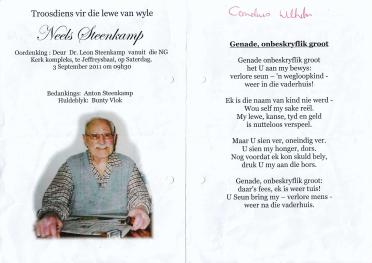 Troosdiens vir die lewe van wyle
Neels Steenkamp
Oordenking : Deur Dr. Leon Steenkamp vanuit die NG
Kerk kompleks, te Jeffreysbaai, op Saterdag.
3 September 2011 om 09h30
Bedankings: Anton Steenkamp
Huldeblyk: Bunty Vlok
Cornelius Wilhelm
Genade, onbeskryflik groot
Genade onbeskryflik groot
het U aan my bewys:
verlore seun – 'n wegloopkind -
weer in die vaderhuis!
Ek is die naam van kind nie werd -
Wou self my sake reël.
My lewe, kanse, tyd en geld
is nutteloos verspeel.
Maar U sien ver, oneindig ver.
U sien my honger, dors.
Nog voordat ek kon skuld bely,
druk U my aan die bors.
Genade, onbeskryflik groot:
daar's fees, ek is weer tuis!
U Seun bring my – verlore mens -
weer na die vaderhuis.